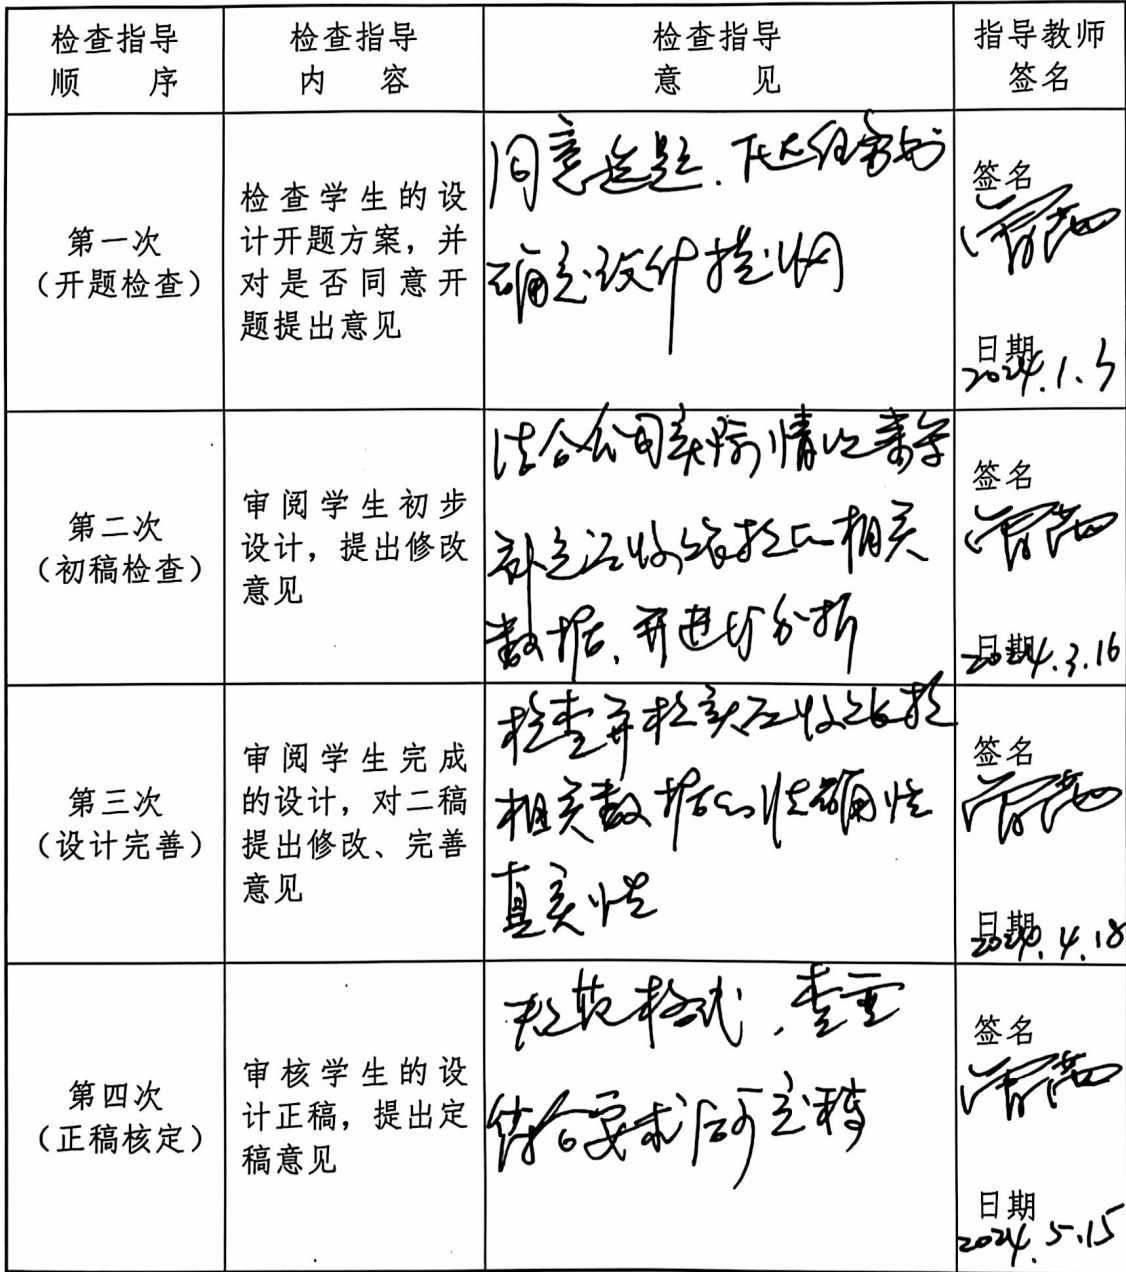 检查指导
顺　序
检查指导
内　容
检查指导
意　见
指导教师
签名
第一次
（开题检查）
检查学生的设
计开题方案，并
对是否同意开
题提出意见
同意选题．下达任务书
确定设计提纲
签名
日期
2024.1.5
第二次
（初稿检查）
审阅学生初步
设计，提出修改
意见
结合公司实际情况
补充应收账款相关
数据，并进行分析
签名
日期
2024.3.16
第三次
（设计完善）
审阅学生完成
的设计，对二稿
提出修改、完善
意见
检查并核实应收账款
相关数据的准确性
真实性
签名
日期
2024.4.18
第四次
（正稿核定）
审核学生的设
计正稿，提出定
稿意见
规范格式，查重
符合要求后可定稿
签名
日期
2024.5.15